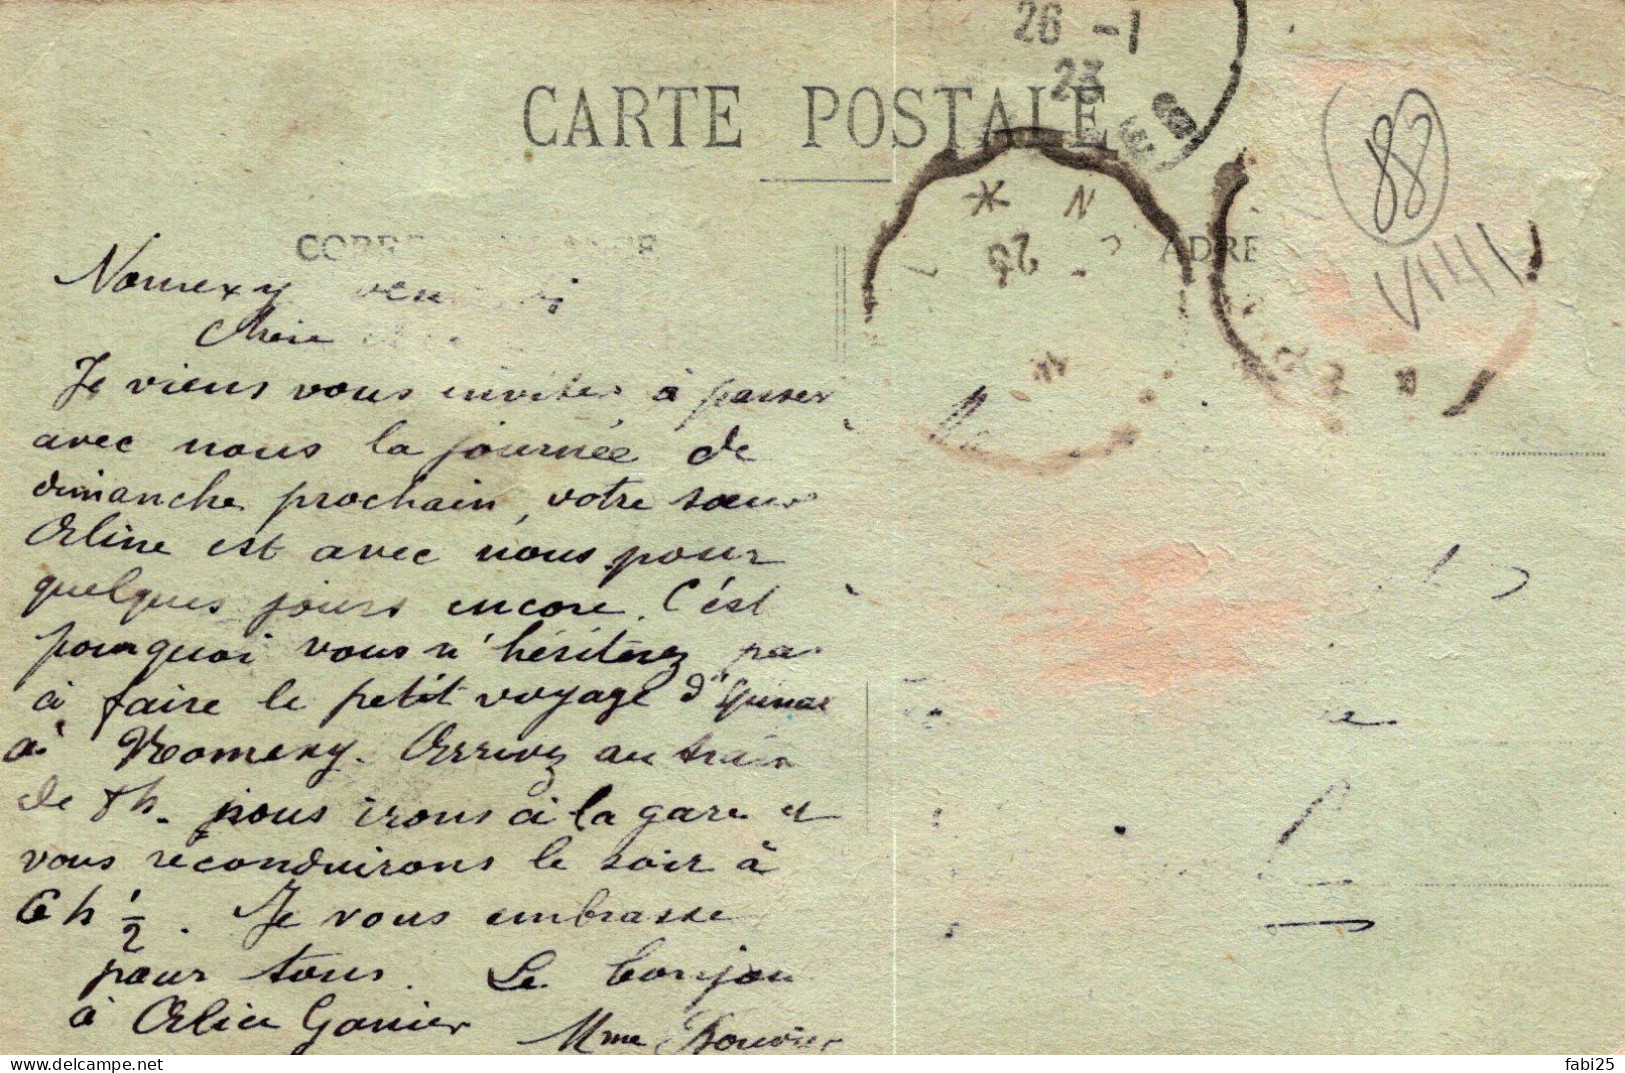 26 -1
23
CARTE POSTALE
88
VIII
ADRE
25
Nomexy
Chère
Je viens vous inviter à passer
avec nous la journée de
dimanche prochain, votre sœur
Aline est avec nous pour
quelques jours encore. C'est
pourquoi vous n'hésiterez pas
à faire le petit voyage d'
à Nomexy. Arrivez au train
de h. nous irons à la gare et
vous reconduirons le soir à
6h 1/2. Je vous embrasse
pour tous. Le bonjour
à Alice Ganier Mme Bouvier
fabi25